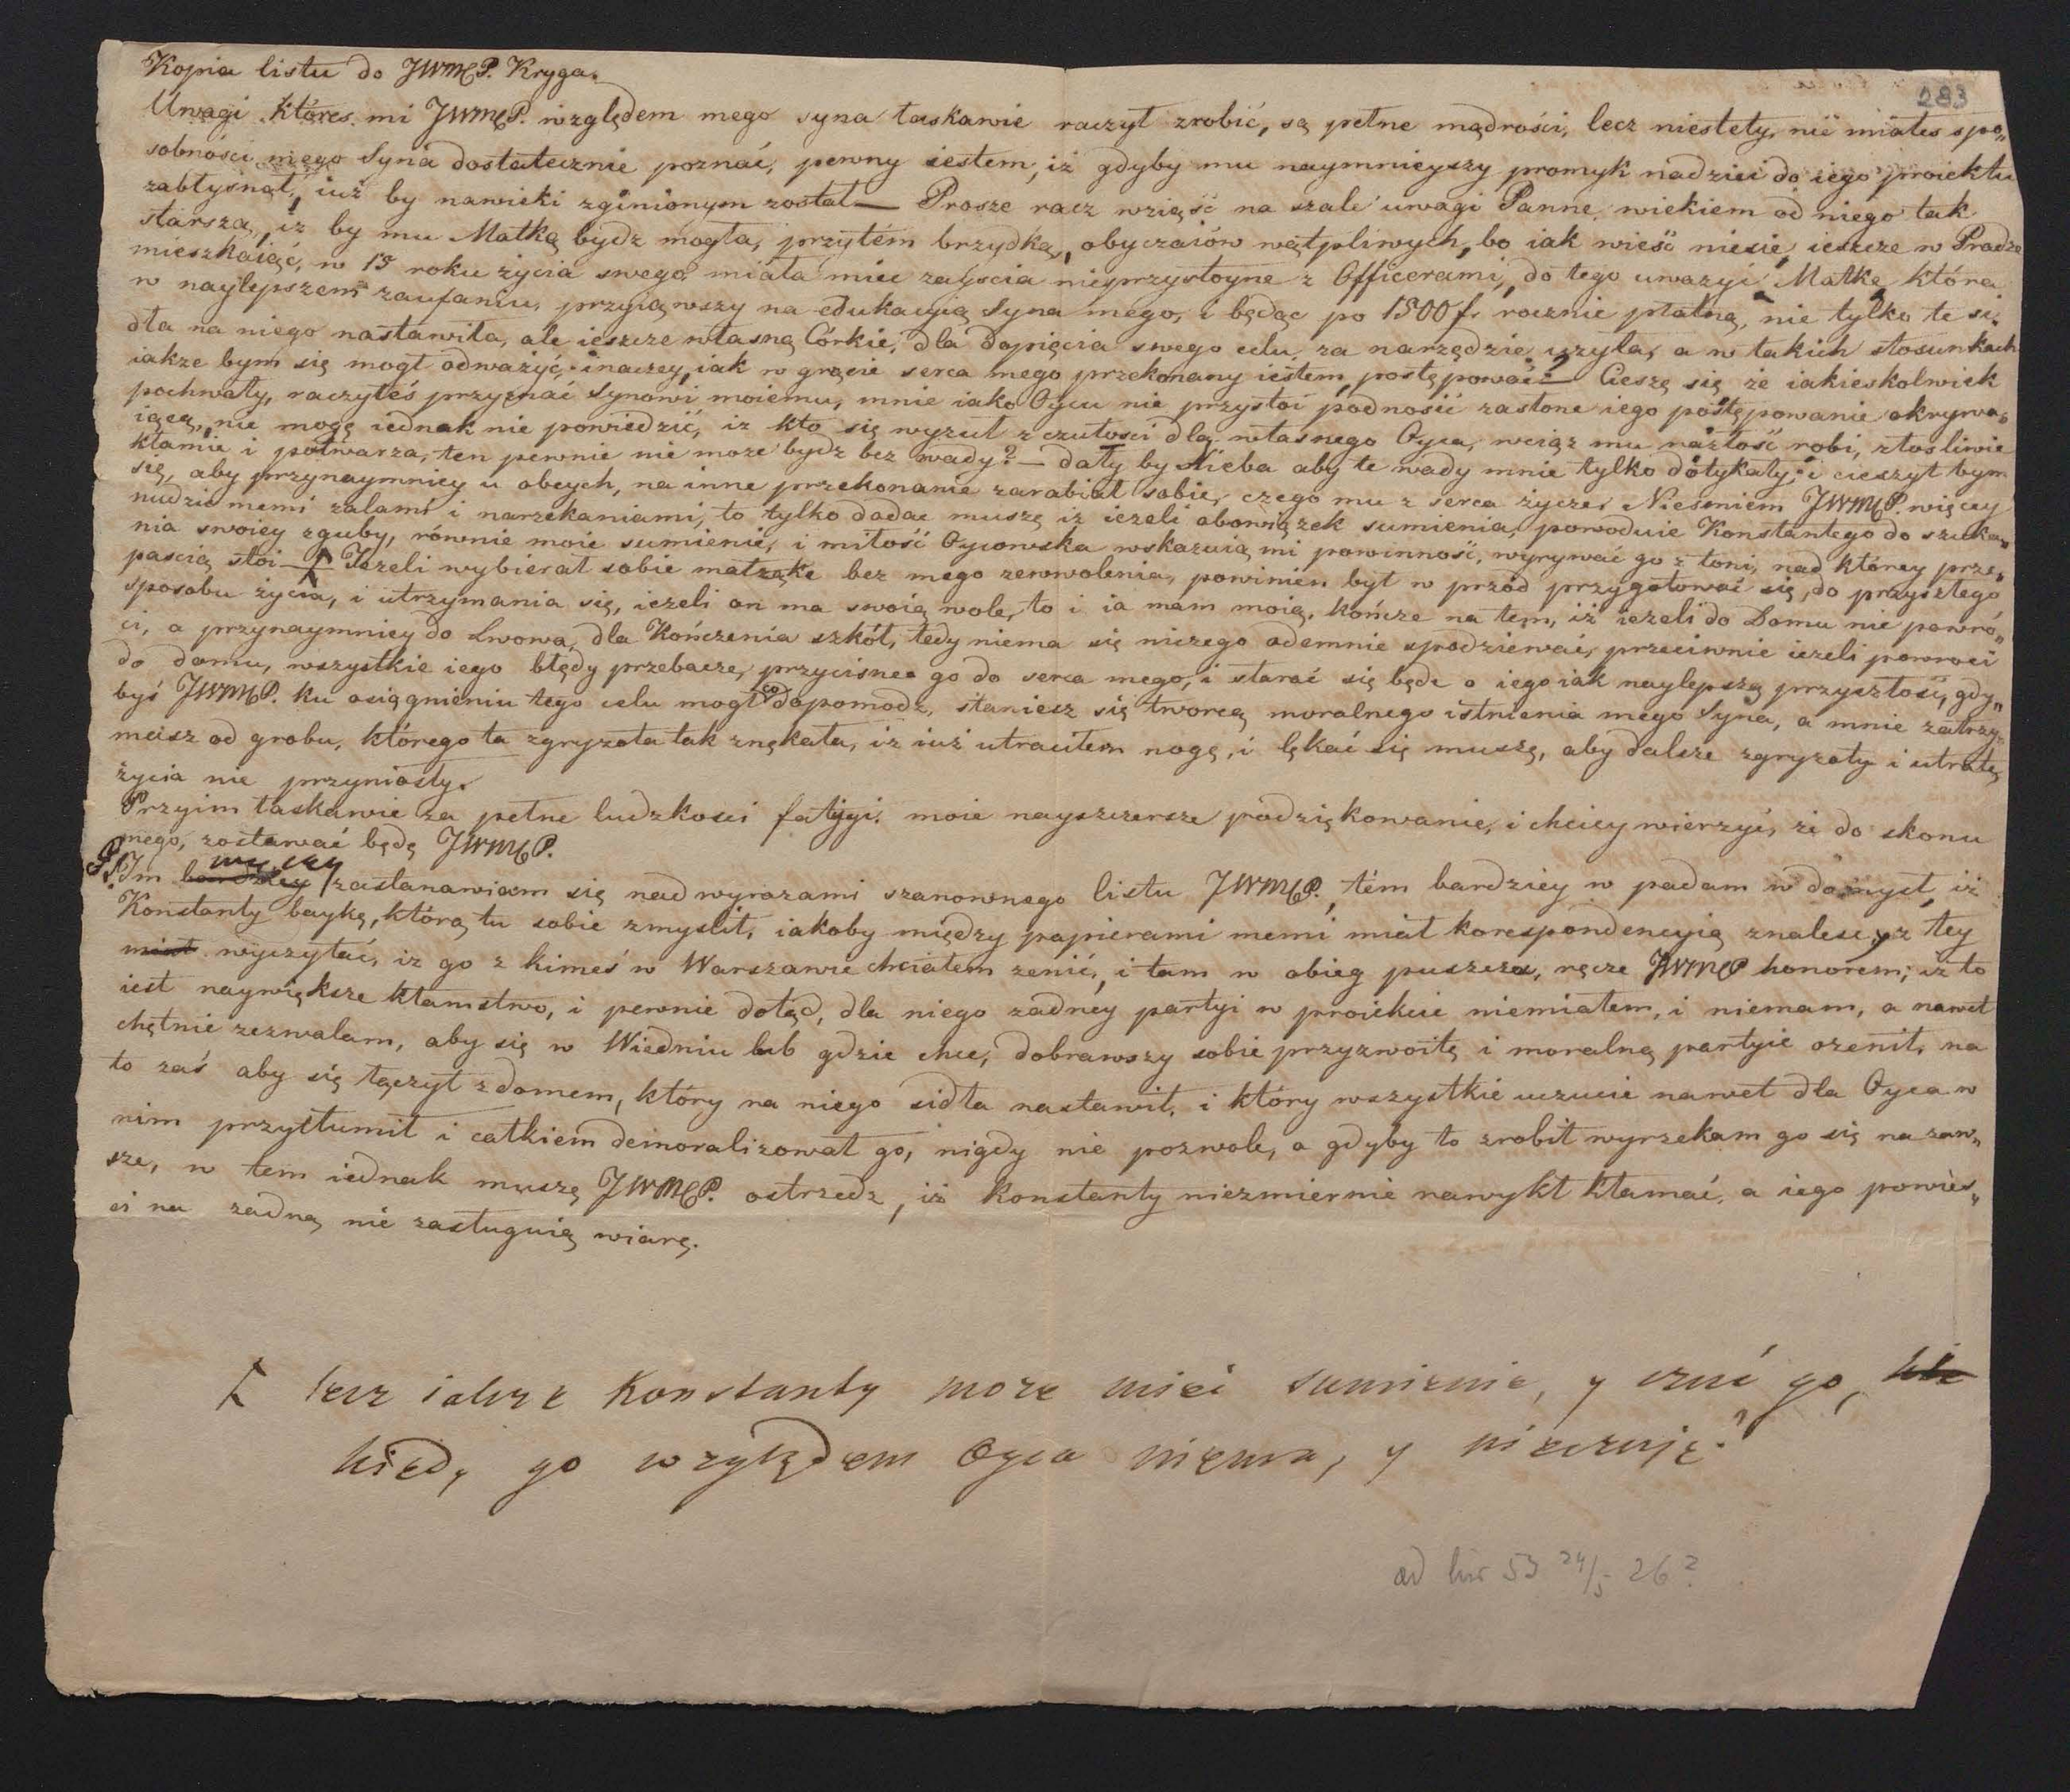 283
Kopia listu do JWMCP. Kryga.
Uwagi któres mi JWMCP. względem mego syna łaskawie raczył zrobić, są pełne mądrości, lecz niestety, nié miałes spo„
sobności mego Syna dostatecznie poznać, pewny iestem, iż gdyby mu naymnieyszy promyk nadziei do iego proiektu
zabłysnął, iuż by nawieki zginionym został — Prosze racz wziąść na szale uwagi Panne, wiekiem od niego tak
starszą, iż by mu Matką bydz mogła, przytém brzydką, obyczaiów wątpliwych, bo iak wieść niesie, ieszcze w Pradze
mieszkaiąć, w 15 roku życia swego miała mieć zayścia nieprzystoyne z Officerami, do tego uwazyć Matkę która
w naylepszem zaufaniu, przyiąwszy na edukacyią Syna mego, i będąc po 1500 f. rocznie płatną, nie tylko te si„
dła na niego nastawiła, ale ieszcze własną Córkie, dla dopięcia swego celu, za narzędzie uzyła, a w takich stosunkach
iakze bym się mogł odważyć, inaczey, iak w gręcie serca mego przekonany iestem, postępować? Cieszę się że iakieskolwiek
pochwały, raczyłeś przyznać Synowi moiemu, mnie iako Oycu nie przystoi podnosić zasłone iego postępowanie okrywa„
iącą, nie mogę iednak nie powiedzić, iz kto się wyzuł z czułości dla własnego Oyca, wciąz mu nazłość robi, złosliwie
kłamie i potwarza, ten pewnie nie moze bydz bez wady? — dały by Nieba aby te wady mnie tylko dotykały, i cieszył bym
się, aby przynaymniey u obcych, na inne przekonanie zarabiał sobie, czego mu z serca życze. Niesmiem JWMCP. więcey
nudzić memi zalami i narzekaniami, to tylko dodać muszę iz iezeli obowiązek sumienia, powoduie Konstantego do szuka„
nia swoiey zguby, równie moie sumienie, i miłość Oycowska wskazuią mi powinność, wyrywać go z toni, nad którey prze„
paścią stoi — Iezeli wybierał sobie małząkę bez mego zezwolenia, powinien był w przód przygotować się, do przyszłego
sposobu życia, i utrzymania się, iezeli on ma swoią wole, to i ia mam moią, kończe na tem, iż iezeli do Domu nie powró„
ci, a przynaymniey do Lwowa, dla Kończenia szkół, tedy niema się niczego odemnie spodziewać, przeciwnie iezeli powroci
do domu, wszystkie iego błędy przebacze, przycisnę go do serca mego, i starać się będe o iego iak naylepszą przyszłość, gdy„
byś JWMCP. ku osiągnieniu tego celu mogł co dopomodz, staniesz się tworcą moralnego istnienia mego Syna, a mnie zatrzy„
masz od grobu, którego ta zgryzota tak znękała, iz iuż utraciłem nogę, i lękać się muszę, aby dalsze zgryzoty i utratę
życia nie przyniosły.
Przyim łaskawie za pełne ludzkosci fatygi, moie nayszczersze podziękowanie, i chciey wierzyć, że do skonu
mego, zostawać będę JWMCP.
P.S. Im bardziey więcey zastanawiam się nad wyrazami szanownego listu JWMCP., tém bardziey w padam w domysł, iż
Konstanty baykę, którą tu sobie zmyslił, iakoby między papierami memi miał korespondencyią znalesć, z tey
miał wyczytać, iz go z kimeś w Warszawie chciałem zenić, i tam w obieg puszcza, ręcze JWMCP honorem, iz to
iest naywiększe kłamstwo, i pewnie dotąd, dla niego zadney partyi w proiekcie niemiałem, i niemam, a nawet
chętnie zezwalam, aby się w Wiedniu lub gdzie chce, dobrawszy sobie przyzwoitę i moralną partyie ozenił, na
to zaś aby się łączył z domem, który na niego sidła nastawił, i który wszystkie uczucie nawet dla Oyca w
nim przytłumił i całkiem demoralizował go, nigdy nie pozwole, a gdyby to zrobił wyrzekam go się na zaw„
sze, w tem iednak muszę JWMCP. ostrzedz, iż Konstanty niezmiernie nawykł kłamać, a iego powieś„
ci na zadną nie zasługuią wiarę.
lecz iakze Konstanty moze mieć sumienie, y czuć go,
kiedy go względem Oyca niema, y nieczuje?
ad 53 24/5 26?